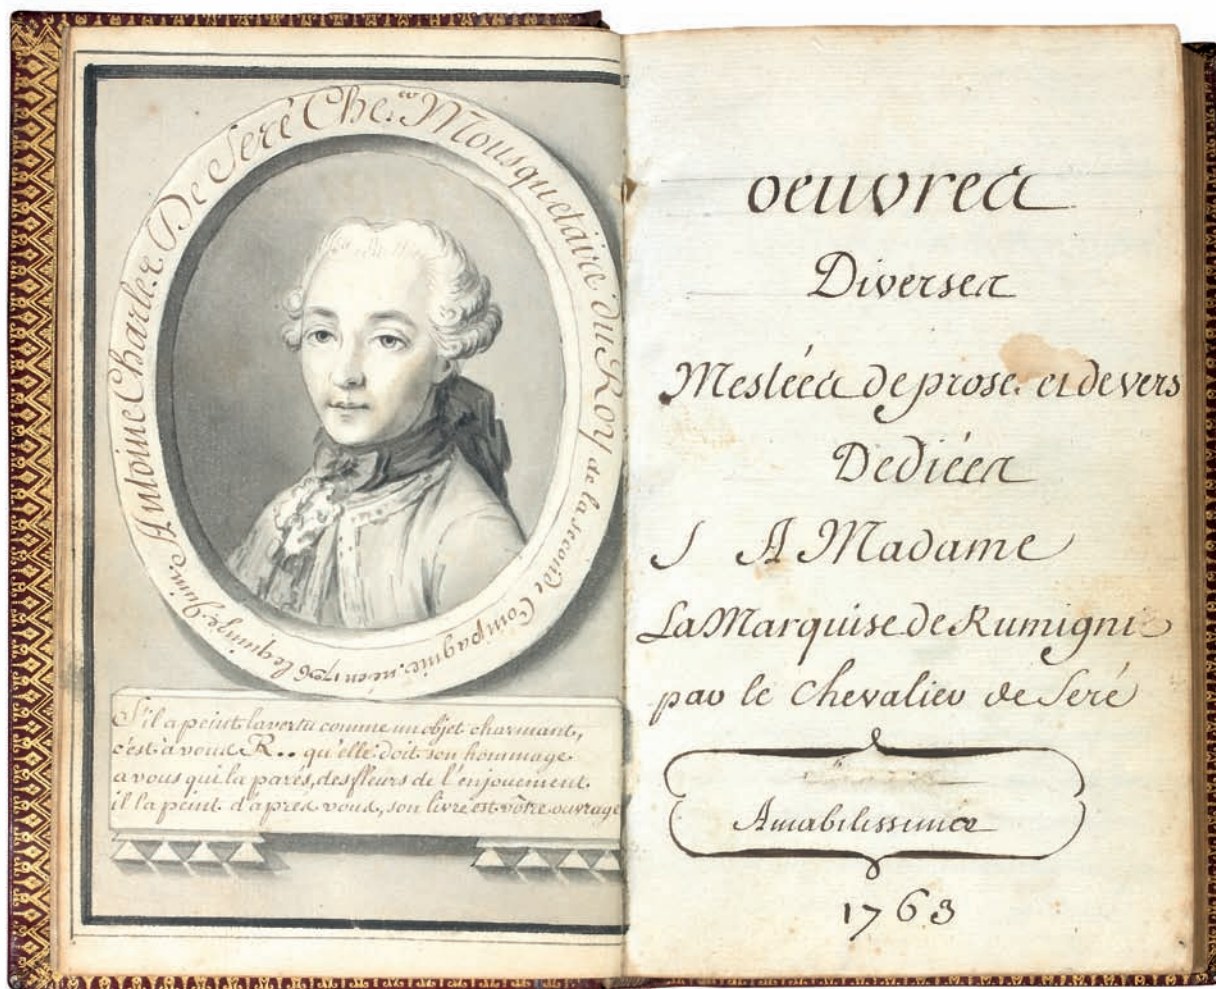 Antoine Charles De Seré Cher. Mousquetaire du Roy de la seconde Compagnie. né en 1736 le quinze Juin.
S'il a peint la vertu comme un objet charmant,
c'est à vous R.. qu'elle doit son hommage
a vous qui la parés, des fleurs de l'enjouement.
il la peint d'après vous, son livre est vôtre ouvrage
oeuvres
Diverses
Meslées de prose. et de vers
Dediées
A Madame
La Marquise de Rumigni
par le Chevalier de Seré
Amabilissimæ
1763